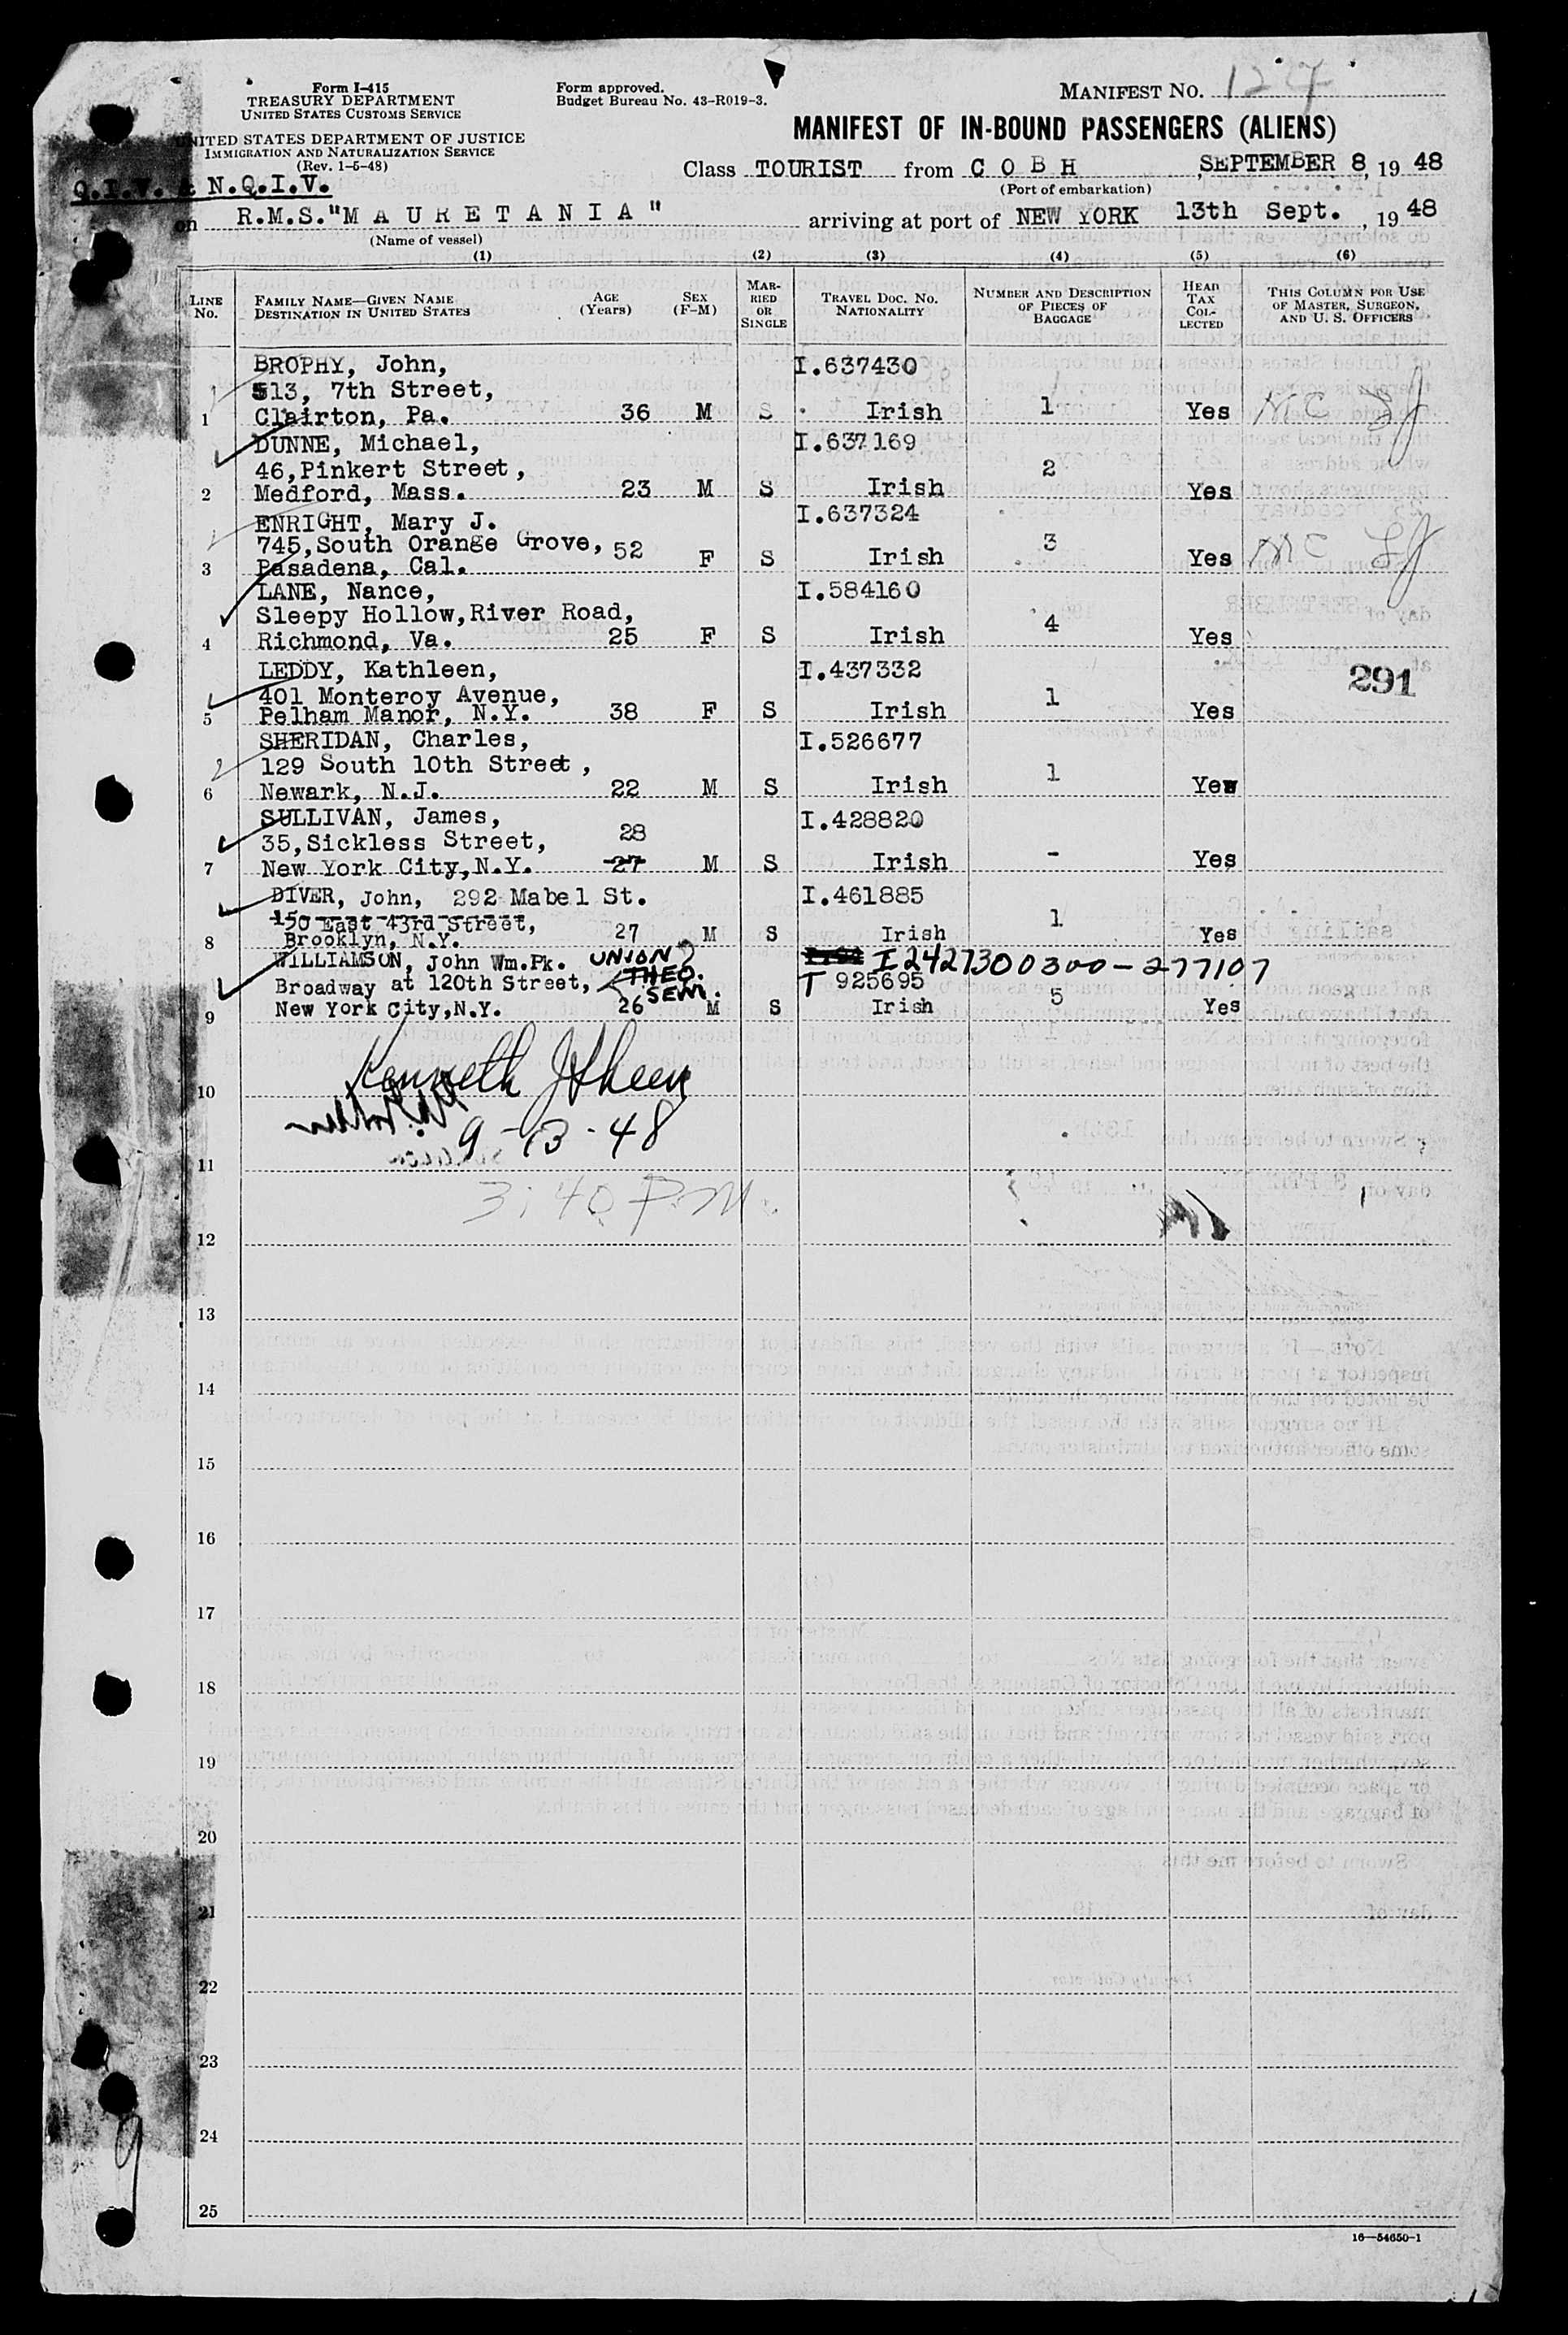 Form I-415
TREASURY DEPARTMENT
UNITED STATES CUSTOMS SERVICE
UNITED STATES DEPARTMENT OF JUSTICE
IMMIGRATION AND NATURALIZATION SERVICE
(Rev. 1-5-48)
Q.I.V. & N.Q.I.V.
Form approved.
Budget Bureau No. 43-R019-3.
MANIFEST NO. 127
MANIFEST OF IN-BOUND PASSENGERS (ALIENS)
Class TOURIST from C O B H, SEPTEMBER 8, 19 48
(Port of embarkation)
on R.M.S."M A U R E T A N I A" arriving at port of NEW YORK 13th Sept., 19 48
(Name of vessel)
(1) (2) (3) (4) (5) (6)
LINE No. FAMILY NAME—GIVEN NAME DESTINATION IN UNITED STATES AGE (Years) SEX (F-M) MARRIED OR SINGLE TRAVEL DOC. NO. NATIONALITY NUMBER AND DESCRIPTION OF PIECES OF BAGGAGE HEAD TAX COLLECTED THIS COLUMN FOR USE OF MASTER, SURGEON, AND U. S. OFFICERS
BROPHY, John, I.637430
513, 7th Street,
1 Clairton, Pa. 36 M S Irish 1 Yes MC
DUNNE, Michael, I.637169
46,Pinkert Street,
2 Medford, Mass. 23 M S Irish 2 Yes
ENRIGHT, Mary J. I.637324
745,South Orange Grove, 52
3 Pasadena, Cal. F S Irish 3 Yes MC
LANE, Nance, I.584160
Sleepy Hollow,River Road,
4 Richmond, Va. 25 F S Irish 4 Yes
LEDDY, Kathleen, I.437332
401 Monteroy Avenue,
5 Pelham Manor, N.Y. 38 F S Irish 1 Yes
291
SHERIDAN, Charles, I.526677
129 South 10th Street,
6 Newark, N.J. 22 M S Irish 1 Yes
SULLIVAN, James, I.428820
35,Sickless Street, 28
7 New York City,N.Y. 27 M S Irish - Yes
DIVER, John, 292 Mabel St. I.461885
150 East 43rd Street,
8 Brooklyn, N.Y. 27 M S Irish 1 Yes
WILLIAMSON, John Wm.Pk. UNION I 2427300300-277107
Broadway at 120th Street, THEO. SEM. T 925695
9 New York City,N.Y. 26 M S Irish 5 Yes
Kenneth J Sheen
10
9-13-48
11
3:40 P.M.
12
13
14
15
16
17
18
19
20
21
22
23
24
25
9
16—54650-1